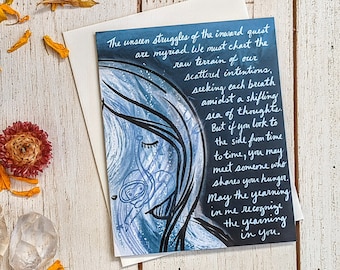 The unseen struggles of the inward quest
are myriad. We must chart the
raw terrain of our
scattered intentions,
seeking each breath
amidst a shifting
sea of thoughts.
But if you look to
the side from time
to time, you may
meet someone who
shares your hunger.
May the yearning
in me recognize
the yearning
in you.